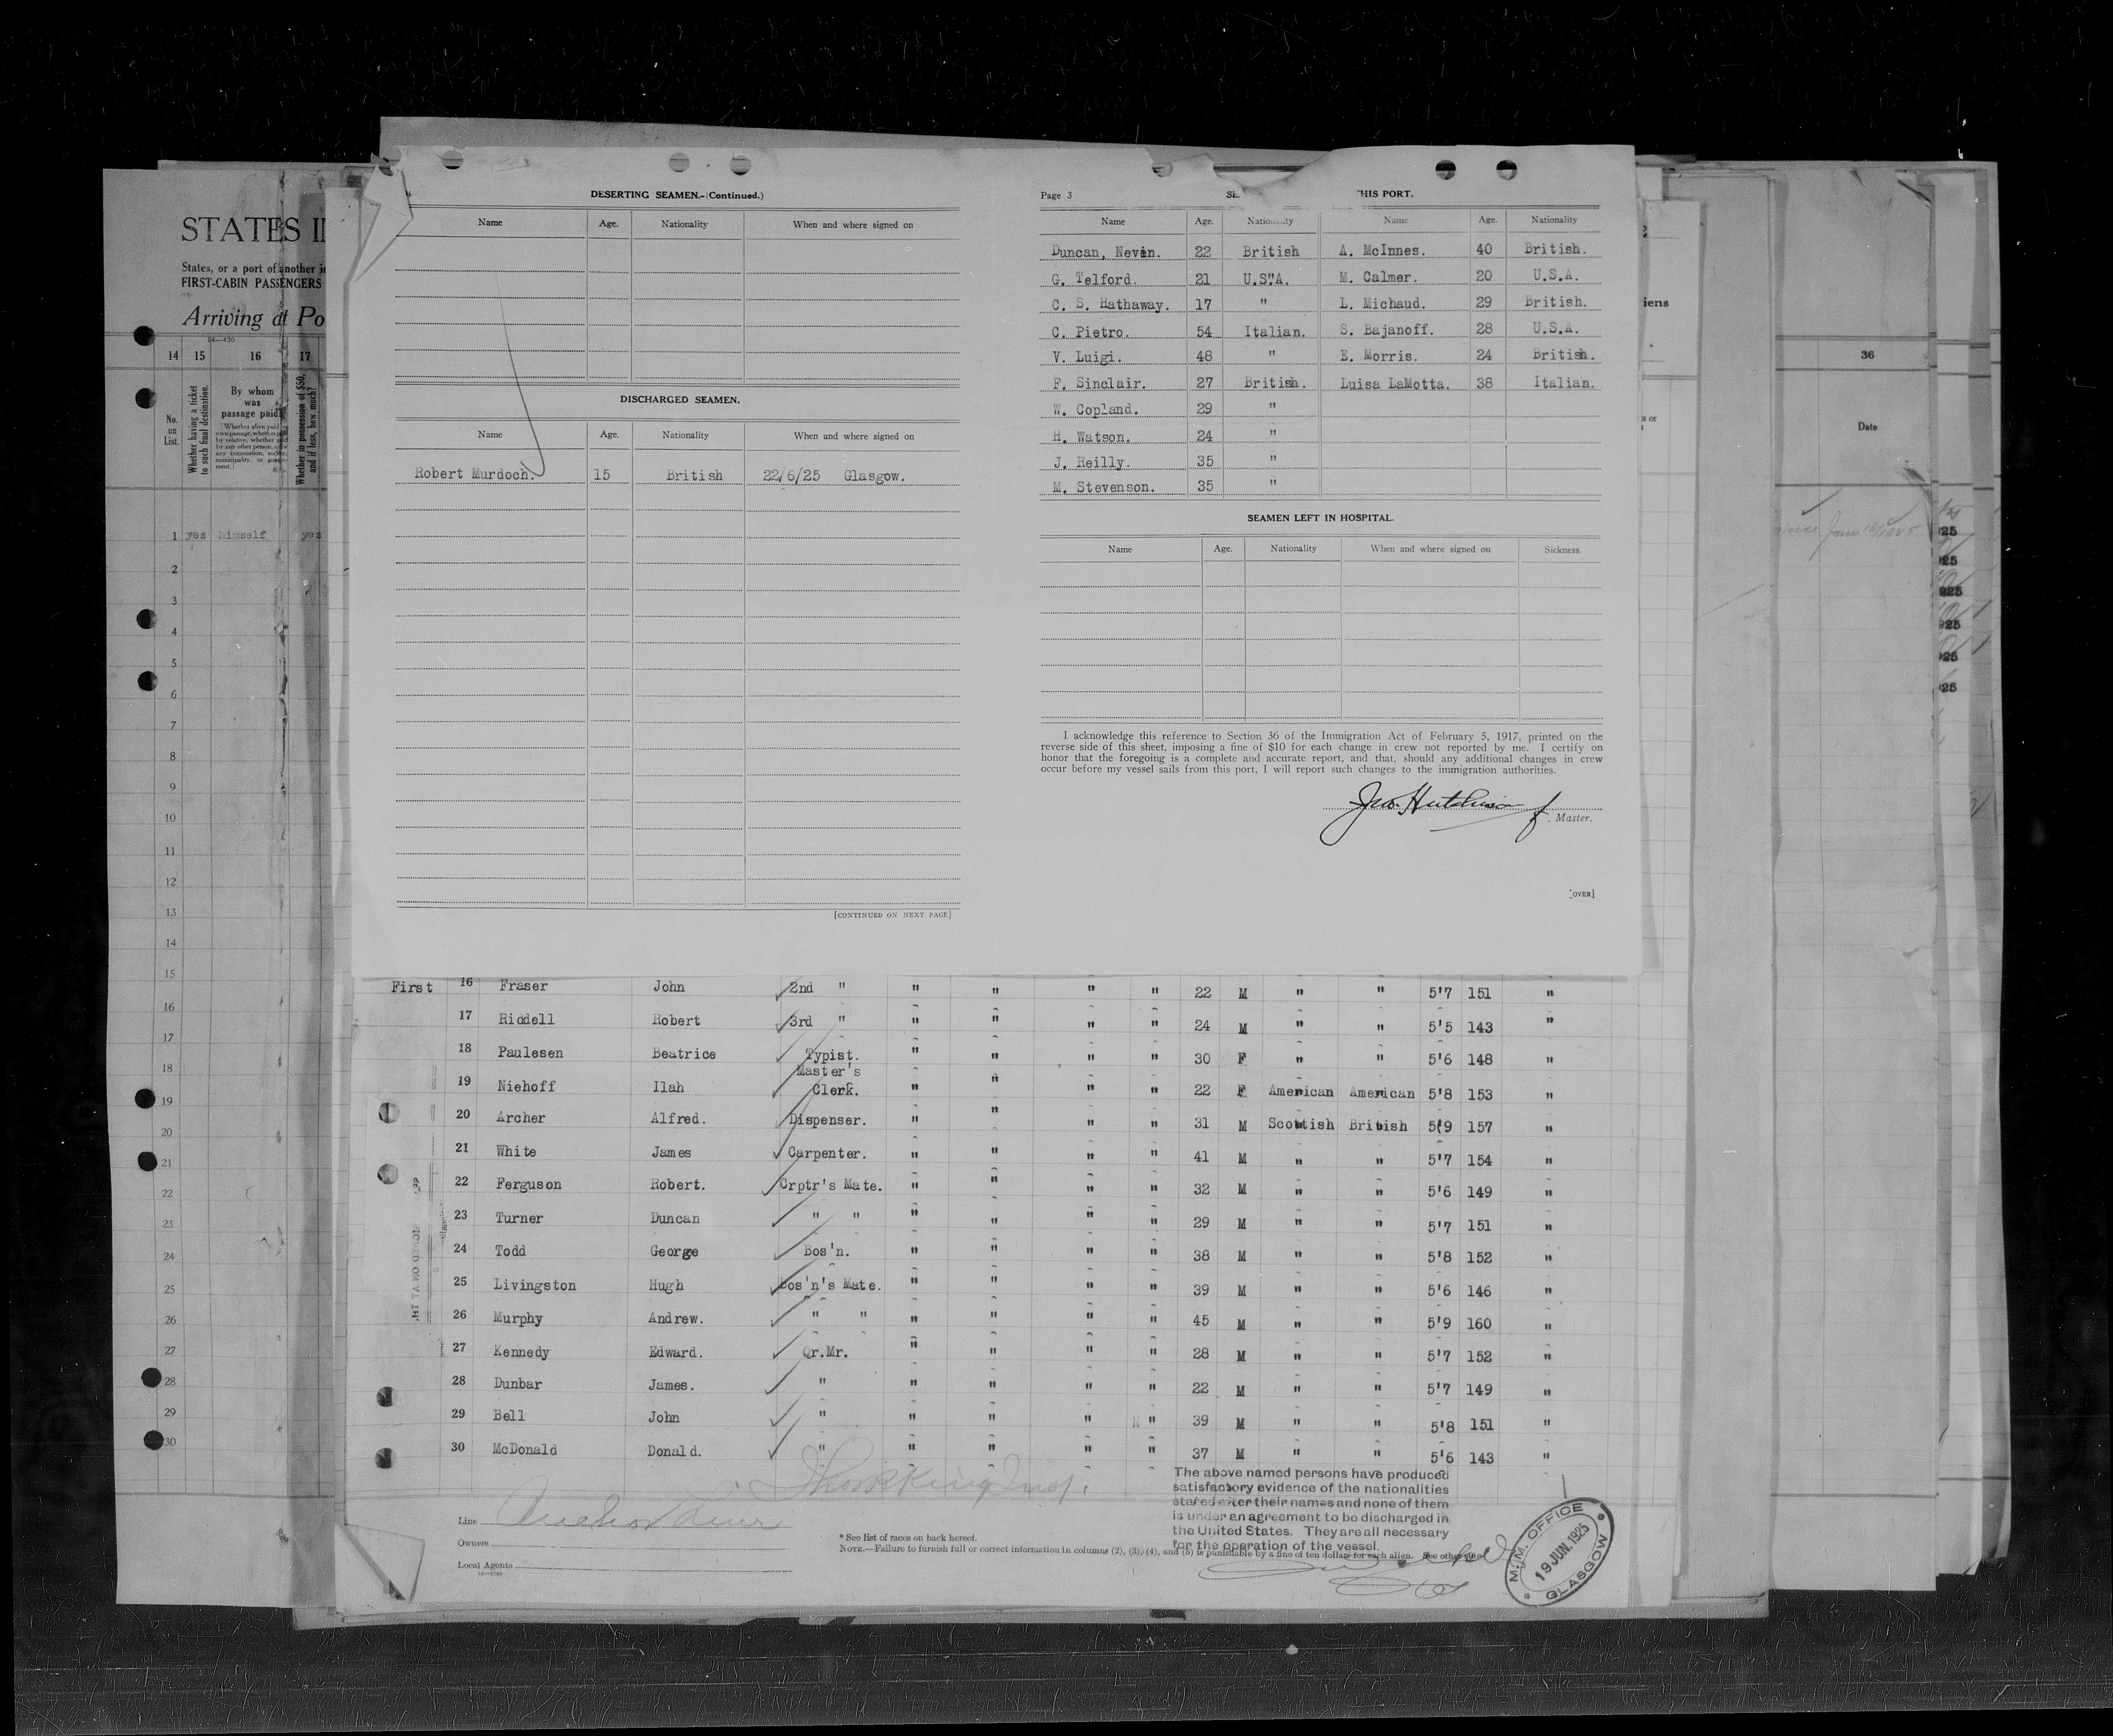 STATES I
States, or a port of another in
FIRST-CABIN PASSENGERS
Arriving at Po
14 15 16 17
No. on List.
Whether having a ticket to such final destination.
By whom was passage paid?
Whether in possession of $50, and if less, how much?
1 yes himself yes
2
3
4
5
6
7
8
9
10
11
12
13
14
15
16
17
18
19
20
21
22
23
24
25
26
27
28
29
30
DESERTING SEAMEN.-(Continued.)
Name Age. Nationality When and where signed on
DISCHARGED SEAMEN.
Name Age. Nationality When and where signed on
Robert Murdoch. 15 British 22/6/25 Glasgow.
[CONTINUED ON NEXT PAGE]
Page 3 SE HIS PORT.
Name Age. Nationality Name Age. Nationality
Duncan, Nevin. 22 British A. McInnes. 40 British.
G. Telford. 21 U.S.A. M. Calmer. 20 U.S.A.
C. S. Hathaway. 17 " L. Michaud. 29 British.
C. Pietro. 54 Italian. S. Bajanoff. 28 U.S.A.
V. Luigi. 48 " E. Morris. 24 British.
F. Sinclair. 27 British. Luisa LaMotta. 38 Italian.
W. Copland. 29 "
H. Watson. 24 "
J. Reilly. 35 "
M. Stevenson. 35 "
SEAMEN LEFT IN HOSPITAL.
Name Age. Nationality When and where signed on Sickness.
I acknowledge this reference to Section 36 of the Immigration Act of February 5, 1917, printed on the
reverse side of this sheet, imposing a fine of $10 for each change in crew not reported by me. I certify on
honor that the foregoing is a complete and accurate report, and that, should any additional changes in crew
occur before my vessel sails from this port, I will report such changes to the immigration authorities.
Jno. Hutchison
Master.
[OVER]
First 16 Fraser John 2nd " " " " " 22 M " " 5'7 151 "
17 Riddell Robert 3rd " " " " " 24 M " " 5'5 143 "
18 Paulesen Beatrice Typist. " " " " 30 F " " 5'6 148 "
19 Niehoff Ilah Master's Clerk. " " " " 22 F American American 5'8 153 "
20 Archer Alfred. Dispenser. " " " " 31 M Scottish British 5'9 157 "
21 White James Carpenter. " " " " 41 M " " 5'7 154 "
22 Ferguson Robert. Crptr's Mate. " " " " 32 M " " 5'6 149 "
23 Turner Duncan " " " " " " 29 M " " 5'7 151 "
24 Todd George Bos'n. " " " " 38 M " " 5'8 152 "
25 Livingston Hugh Bos'n's Mate. " " " " 39 M " " 5'6 146 "
26 Murphy Andrew. " " " " " " 45 M " " 5'9 160 "
27 Kennedy Edward. Qr.Mr. " " " " 28 M " " 5'7 152 "
28 Dunbar James. " " " " " 22 M " " 5'7 149 "
29 Bell John " " " " " 39 M " " 5'8 151 "
30 McDonald Donald. " " " " " 37 M " " 5'6 143 "
The above named persons have produced
satisfactory evidence of the nationalities
stated after their names and none of them
is under an agreement to be discharged in
the United States. They are all necessary
for the operation of the vessel.
Line Anchor Line
Owners
Local Agents
14-1740
* See list of races on back hereof.
NOTE.—Failure to furnish full or correct information in columns (2), (3), (4), and (5) is punishable by a fine of ten dollars for each alien. See other
M.M. OFFICE
19 JUN. 1925
GLASGOW
iens
36
Date